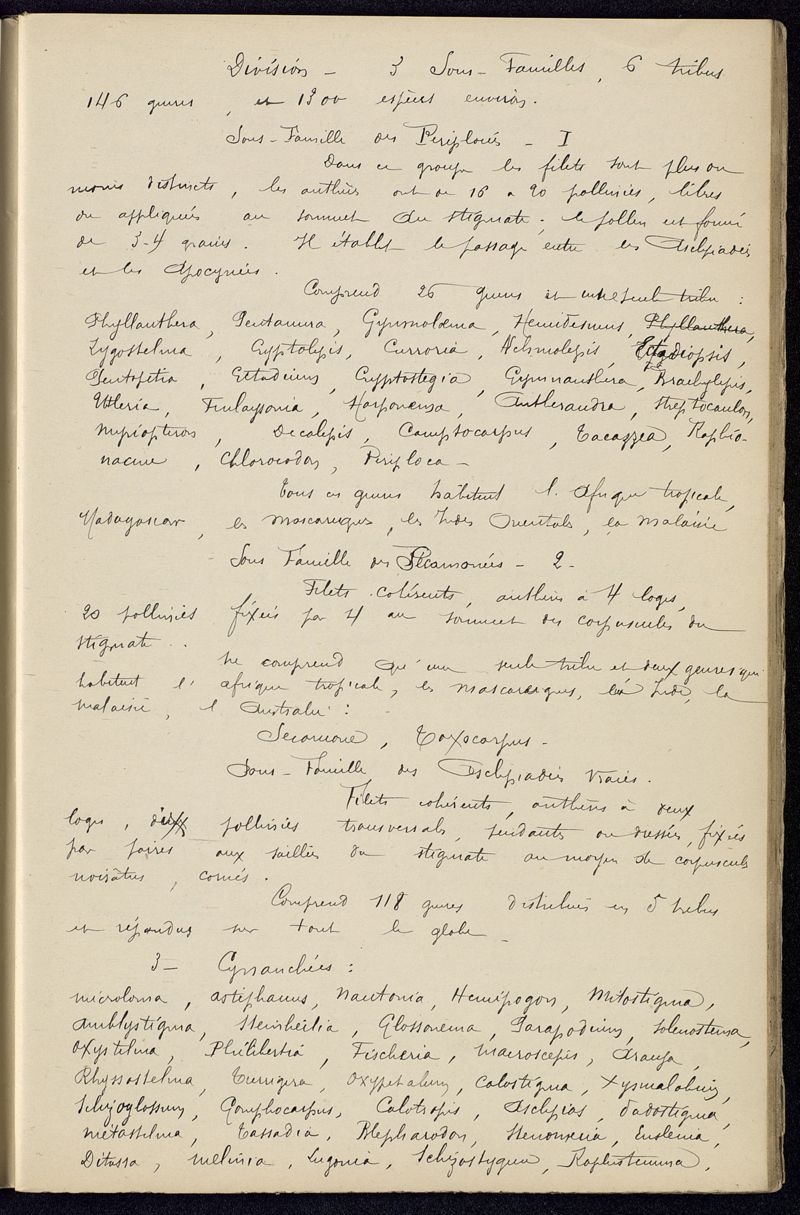 Division – 3 Sous-Familles, 6 tribus
146 genres, et 1300 espèces environ.
Sous-Famille des Periplocées – I
Dans ce groupe les filets sont plus ou
moins distincts, les anthères ont de 16 a 20 pollinies, libres
ou appliquées au sommet du stigmate; le pollen est formé
de 3-4 grains. Il établit le passage entre les Asclépiadées
et les Apocynées.
Comprend 26 genres et une seule tribu :
Phyllanthera, Pentanura, Gymnolæma, Hemidesmus, Phyllanthera,
Zygostelma, Cryptolepis, Curroria, Ectadiopsis,
Pentopetia, Ectadium, Cryptostegia, Gymnanthera, Brachylepis,
Utleria, Finlaysonia, Harpanema, Antherandra, Streptocaulon,
Myriopteron, Decalepis, Camptocarpus, Tacazzea, Raphio-
nacme, Chlorocodon, Periploca –
Tous ces genres habitent l'Afrique tropicale,
Madagascar, les Mascareignes, les Indes Orientales, la Malaisie
Sous Famille des Sécamonées – 2 –
Filets cohérents, anthères à 4 loges,
20 pollinies fixées par 4 au sommet des corpuscules du
stigmate.
Ne comprend qu'une seule tribu et deux genres qui
habitent l'Afrique tropicale, les Mascareignes, l'Inde, la
Malaisie, l'Australie :
Secamone, Toxocarpus –
Sous-Famille des Asclépiadées vraies.
Filets cohérents, anthères à deux
loges, deux pollinies transversales, pendantes ou dressées, fixées
par paires aux saillies du stigmate au moyen de corpuscules
noirâtres, cornés.
Comprend 118 genres distribués en 5 tribus
et répandus sur tout le globe –
3 – Cynanchées :
Microloma, Astephanus, Nautonia, Hemipogon, Mitostigma,
Amblystigma, Steinheilia, Glossonema, Parapodium, Solenostemma,
Oxystelma, Philibertia, Fischeria, Macroscepis, Araujia,
Rhyssostelma, Turrigera, Oxypetalum, Calostigma, Xysmalobium,
Schizoglossum, Gomphocarpus, Calotropis, Asclepias, Vadostigma,
Metastelma, Tassadia, Blepharodon, Stenomeria, Enslenia,
Ditassa, Melinia, Lugonia, Schizostygma, Raphistemma,